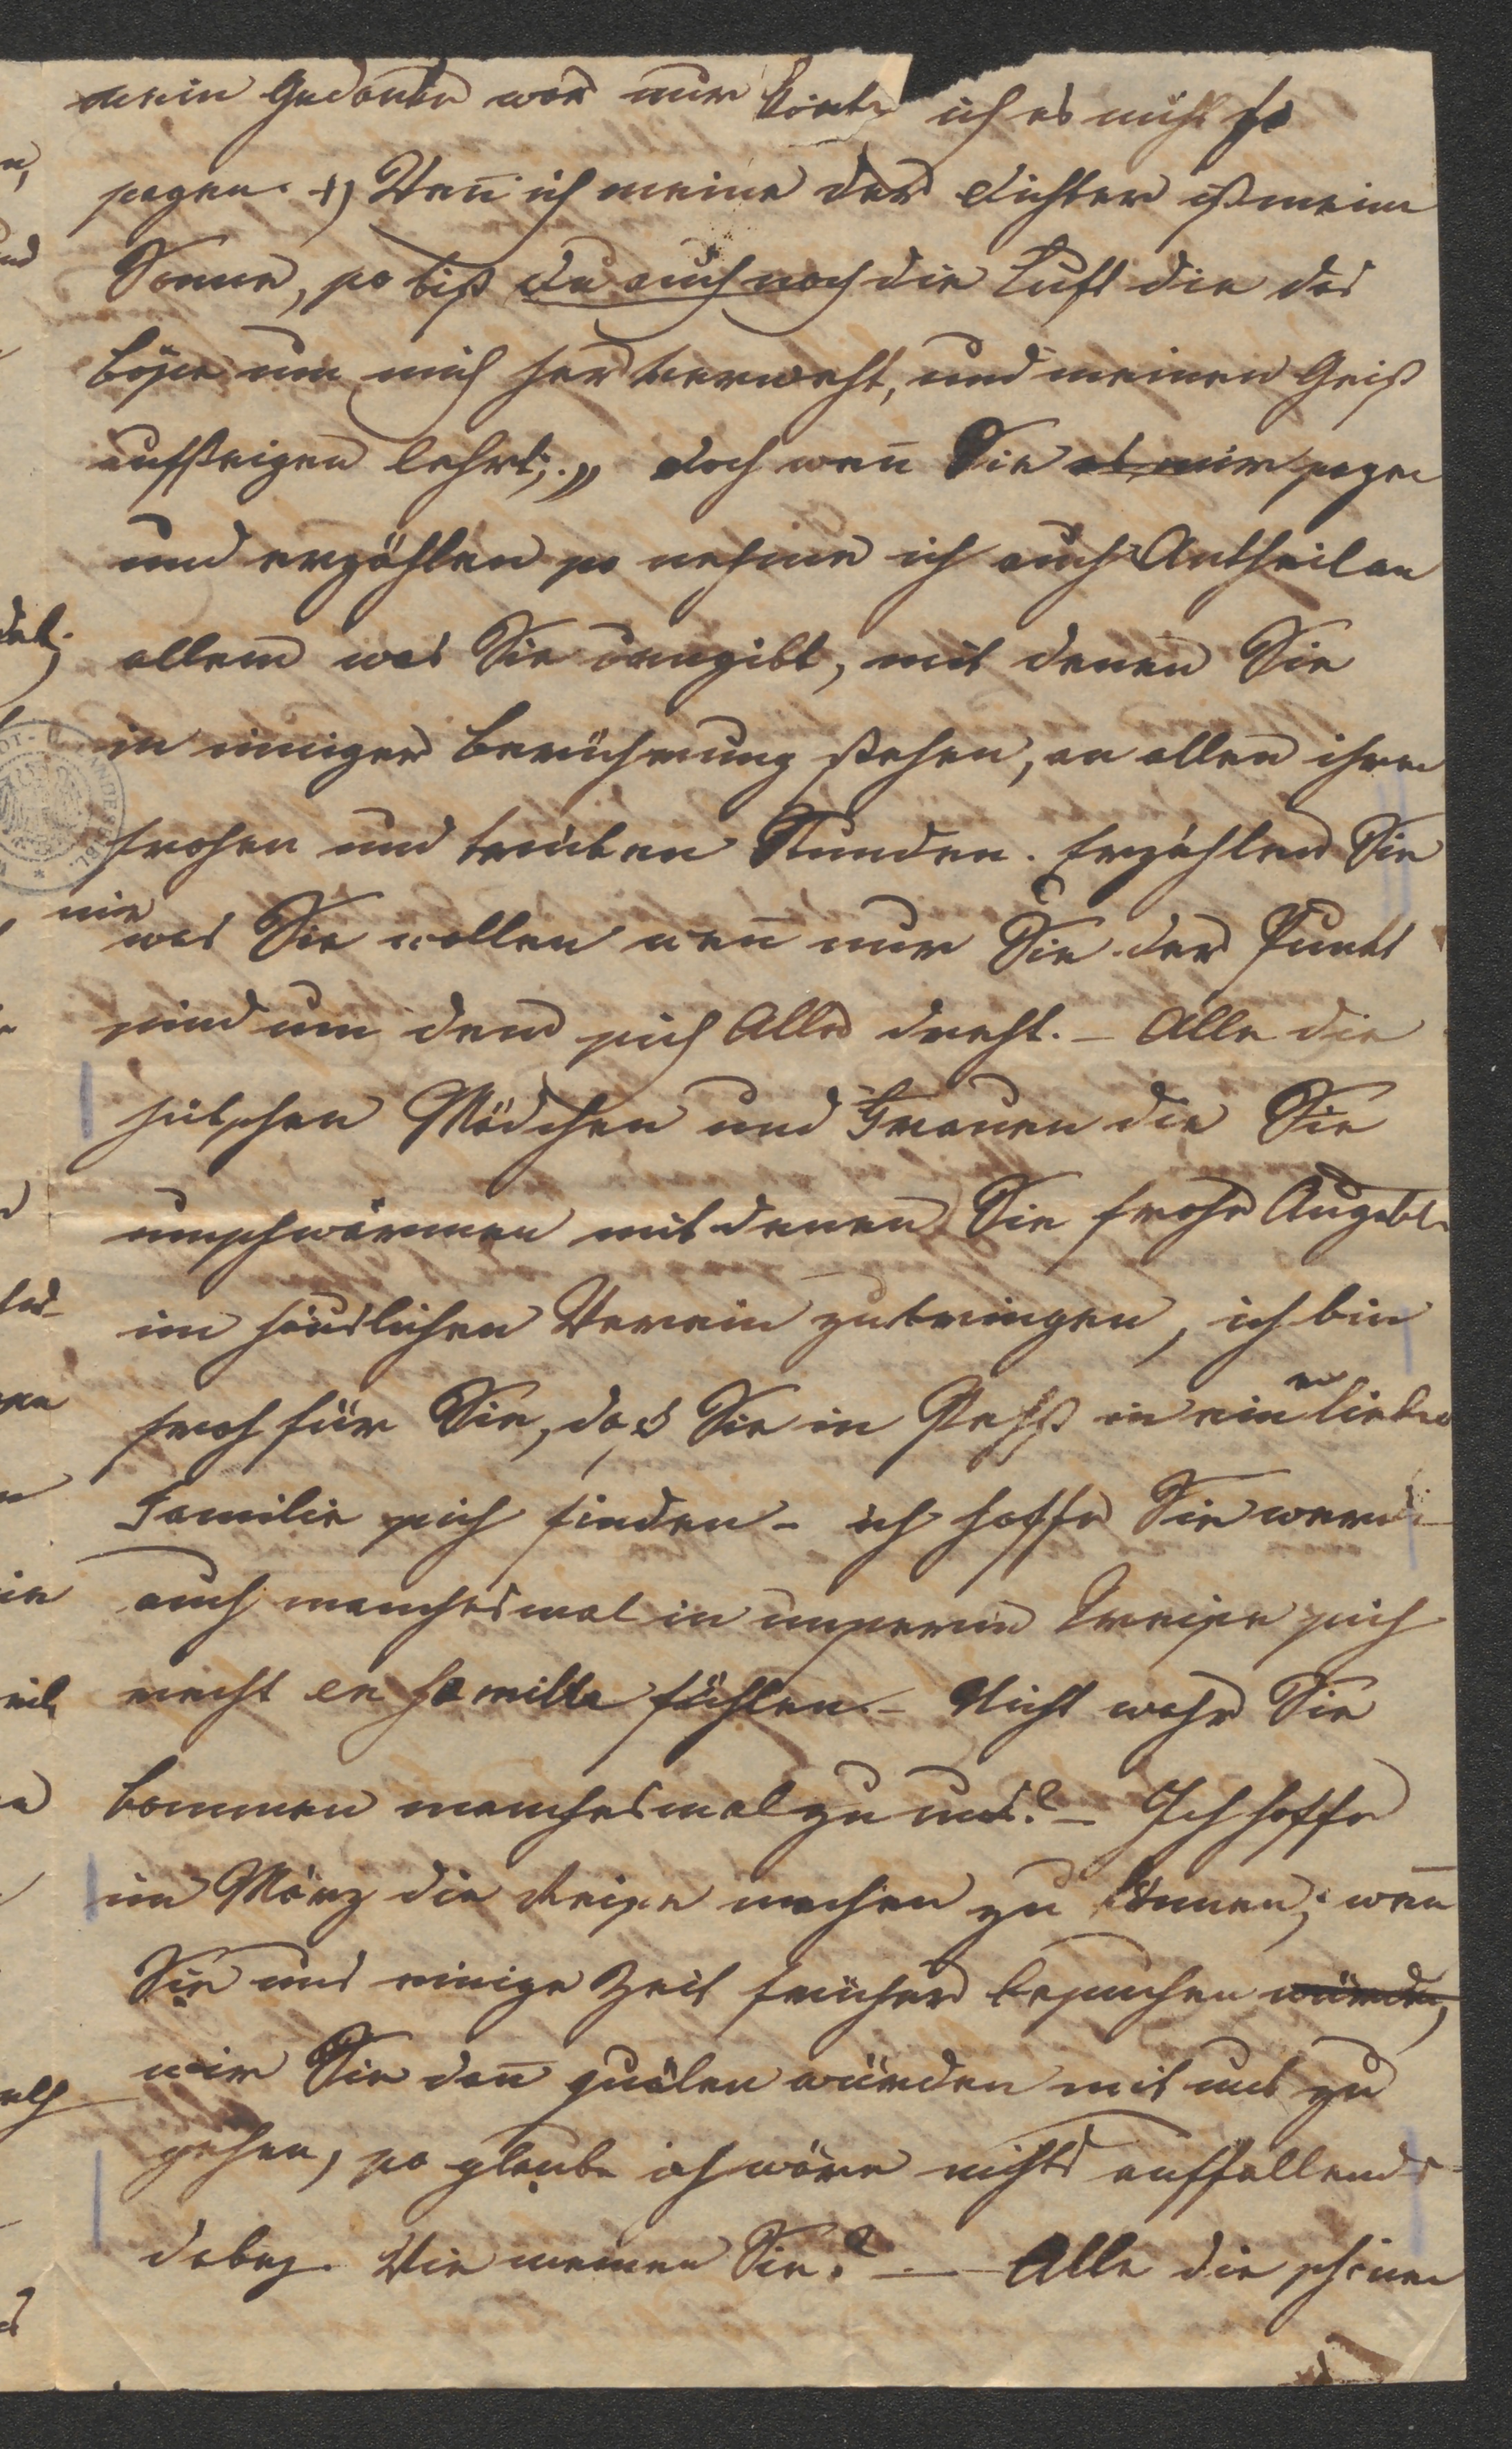 mein Gedanke war nur könte ich es nicht so
sagen. +) Wen̄ ich meine der Dichter ist meine
Sonne, so bist du auch noch die Luft die das
böse um mich her verweht, und meinen Geist
aufsteigen lehrt;. „ doch wen̄ Sie es mir sagen
und erzählen so nehme ich auch Antheil an
allem was Sie umgibt, mit denen Sie
in inniger Berührung stehen, an allen ihren
frohen und trüben Stunden. Erzählen Sie
mir
was Sie wollen wen̄ nur Sie der Punkt
sind um dem sich Alles dreht. – Alle die
hübschen Mädchen und Frauen die Sie
umschwärmen mit denen Sie frohe Augebl.
im häuslichen Verein zubringen, ich bin
froh für Sie, daß Sie in Pesth in eine liebe
Familie sich finden – ich hoffe Sie werden
auch manchesmal in unserem Kreise sich
recht en famille fühlen. – Nicht wahr Sie
kommen manchesmal zu uns? – Ich hoffe
im März die Reise machen zu können; wen̄
Sie uns einige Zeit früher besuchen würden,
wir Sie dan̄ quälen würden mit uns zu
gehen, so glaube ich wäre nichts auffallendes
dabey. Wie meinen Sie? — Alle die schönen